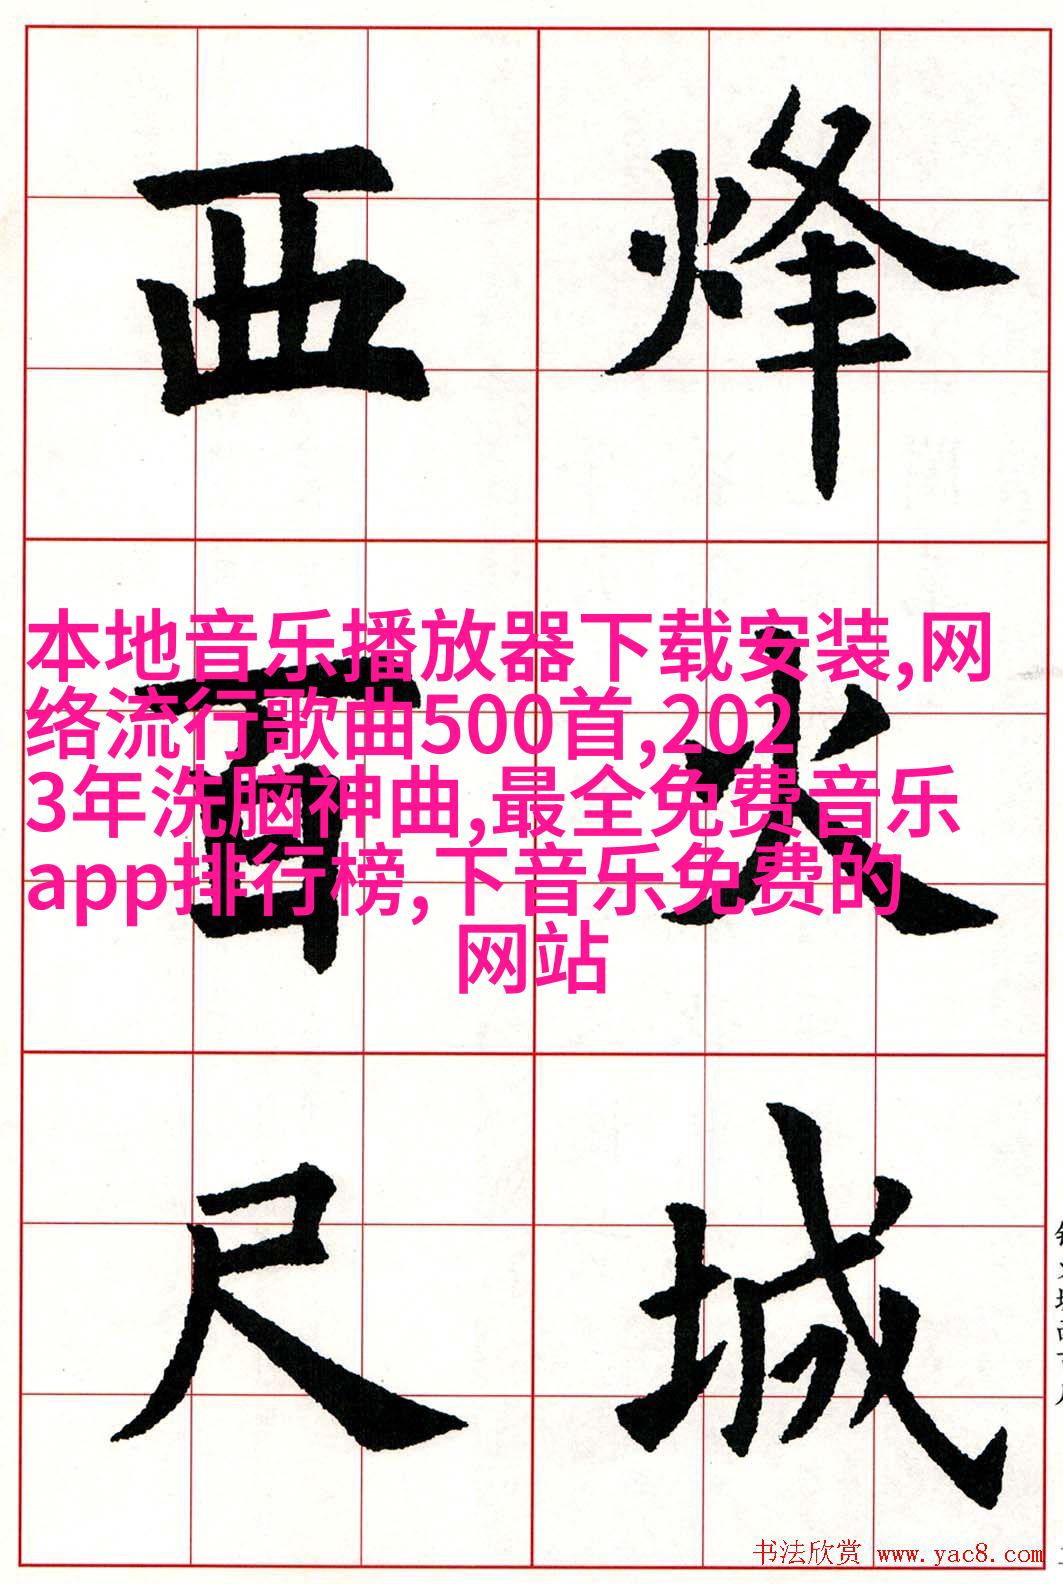 烽火城
西百尺
本地音乐播放器下载安装,网
络流行歌曲500首,202
3年洗脑神曲,最全免费音乐
app排行榜,下音乐免费的
网站
书法欣赏 www.yac8.com